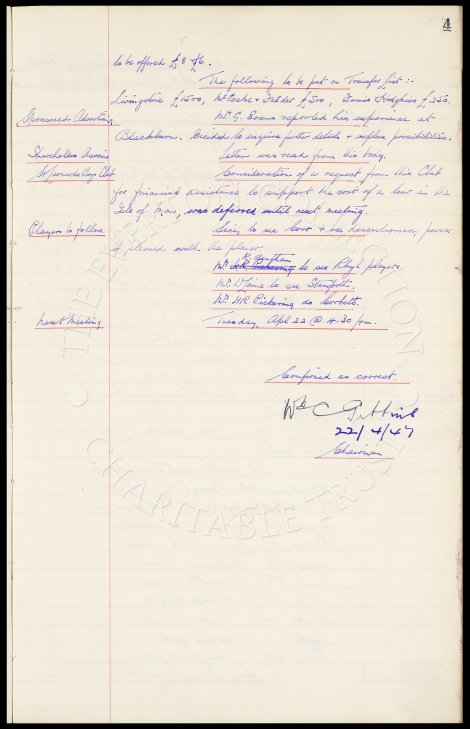 4
to be offered £8 - £6.
The following to be put on Transfer List :-
Livingstone £1500, McPeake & Felder £500, Dennis & Hodgkiss £250.
Sponsored Advertising Mr. G. Evans reported his experience at
Blackburn. Decided to enquire further details & explore possibilities.
Shareholders Associn Letter was read from this body.
St Leonards Boys Club Consideration of a request from this Club
for financial assistance to support the cost of a tour in the
Isle of Man, was deferred until next meeting.
Players to follow. Secy. to see & use discretionary power
if pleased with the player.
Mr. W.R. Pickering to see Rhyl players.
Mr. to see Staniforth.
Mr. W.R. Pickering do Corbett.
Next Meeting Tuesday, Apl 22 @ 4.30 pm.
Confirmed as correct.
Wm C Gibbins
22/4/47
Chairman
THE EVERTON COLLECTION
CHARITABLE TRUST